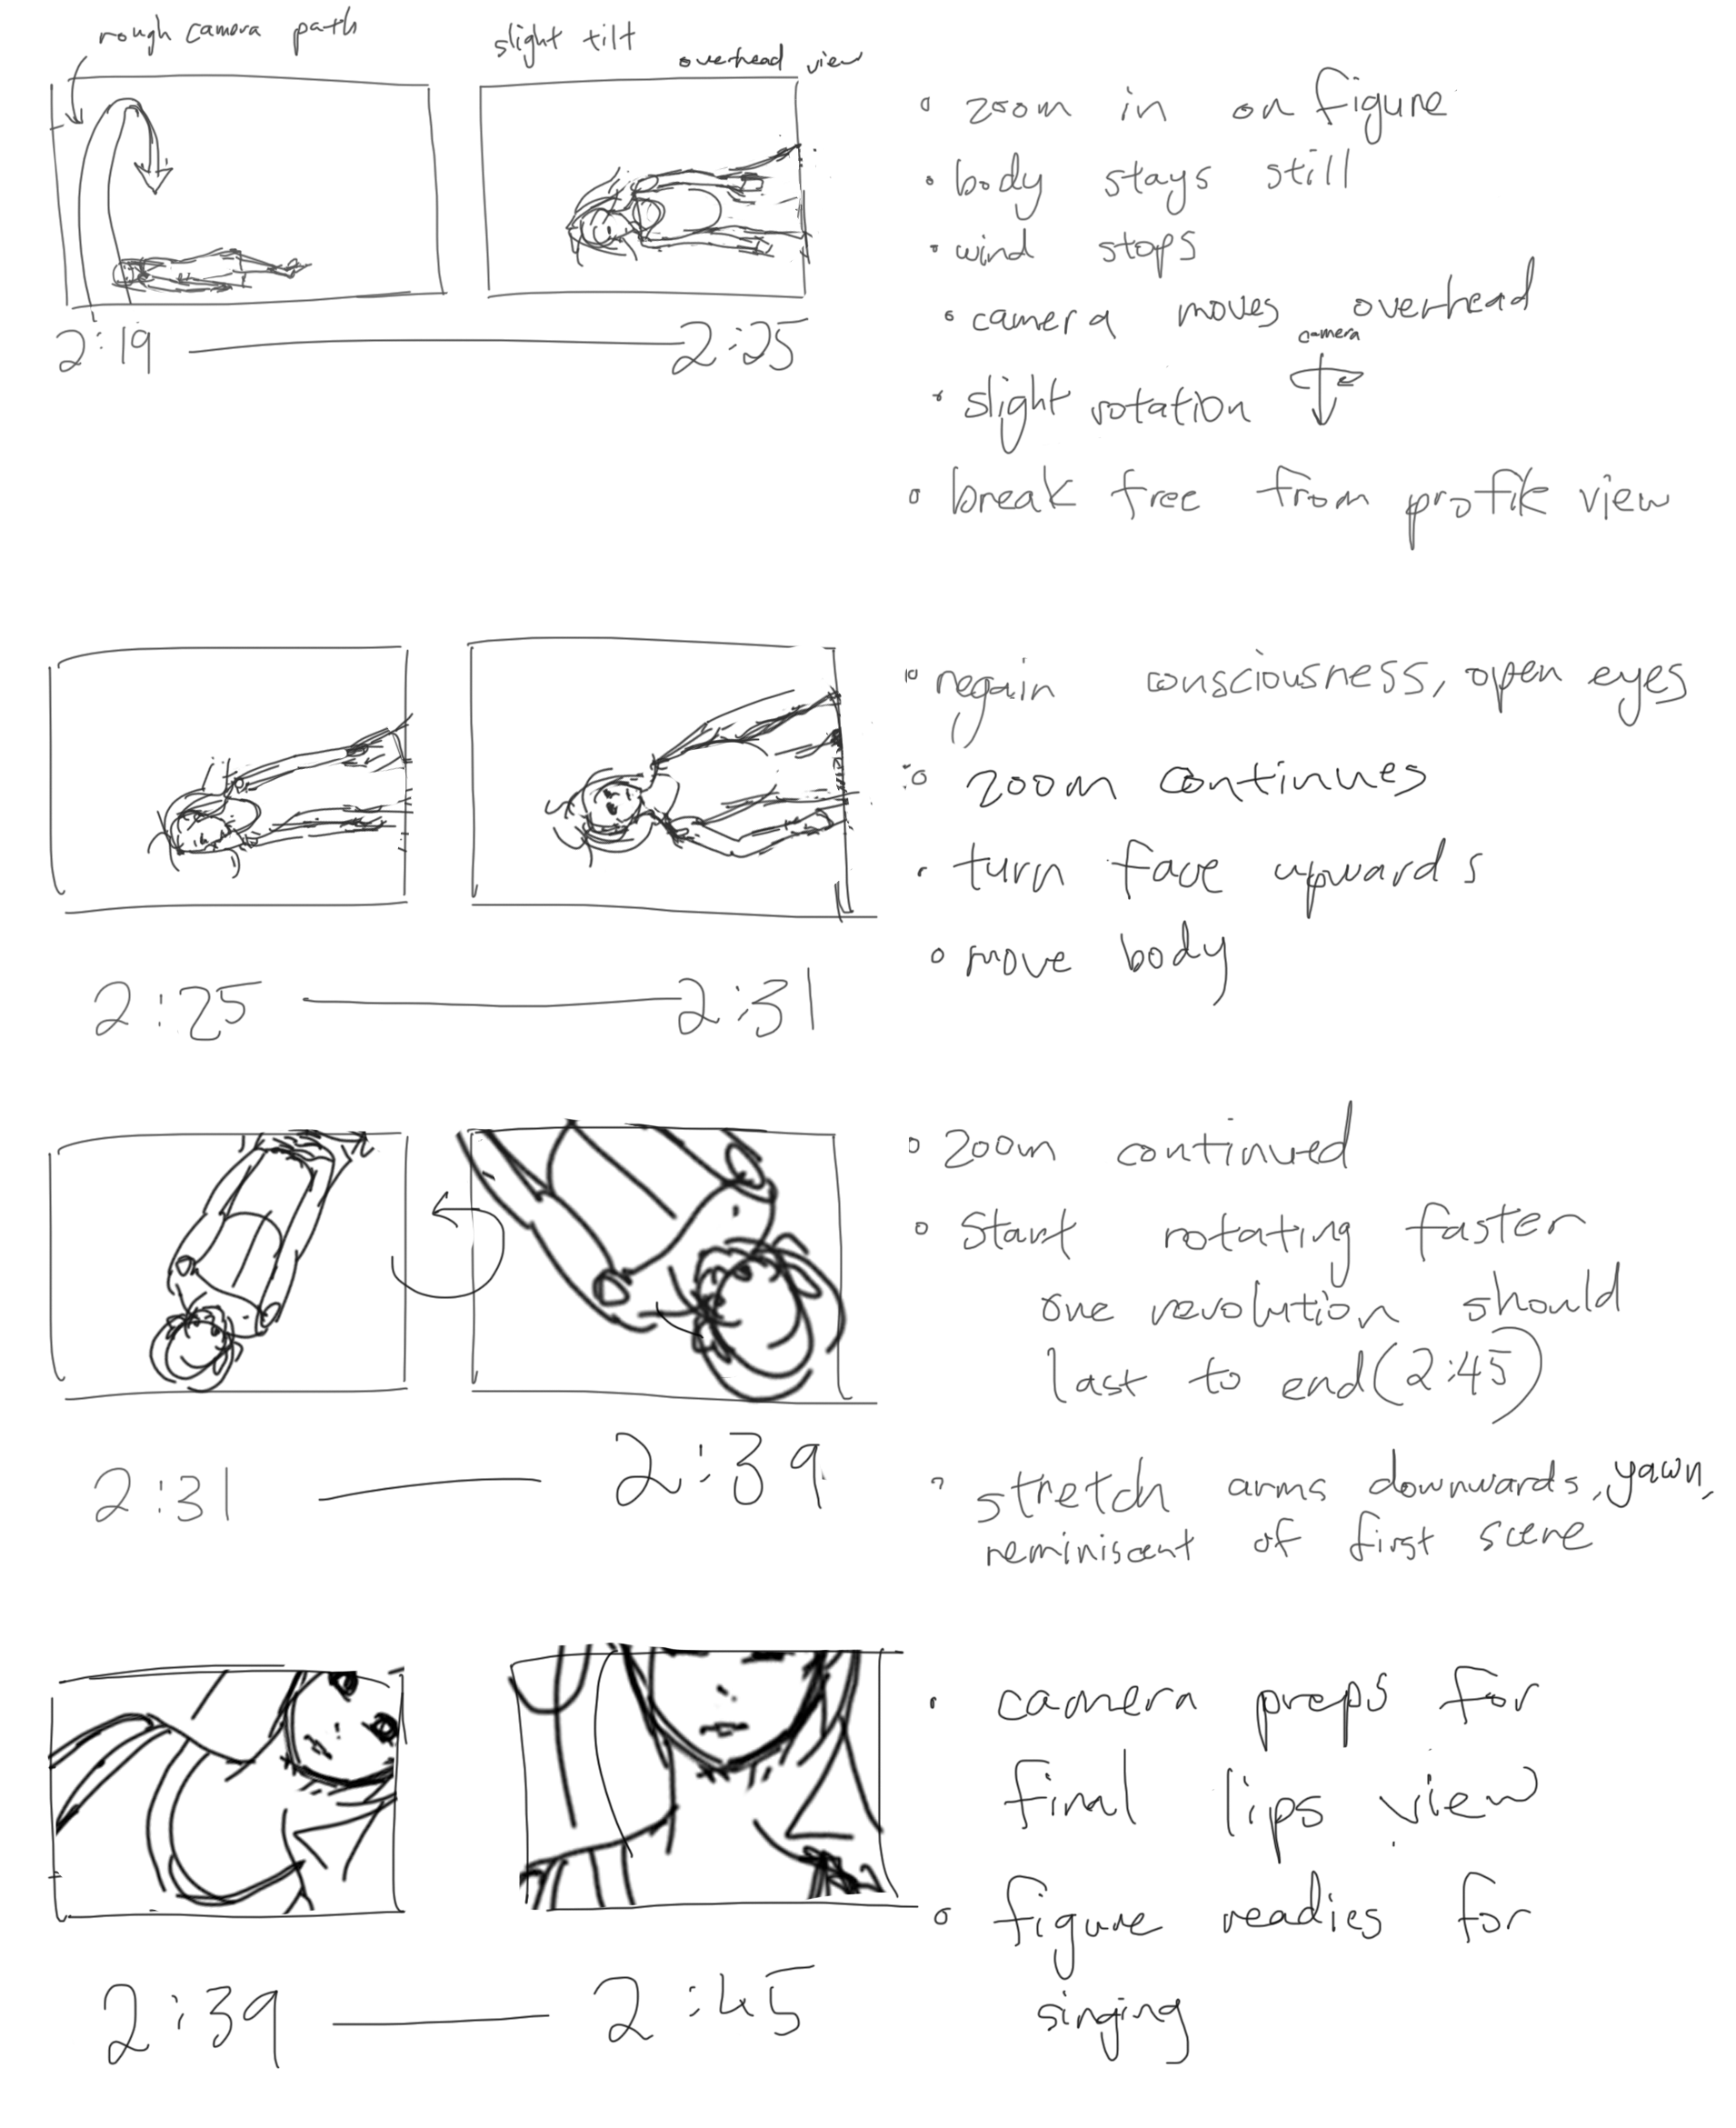 rough camera path
slight tilt
overhead view
2:19 2:25
zoom in on figure
body stays still
wind stops
camera moves overhead
camera
slight rotation
break free from profile view
2:25 2:31
regain consciousness, open eyes
zoom continues
turn face upwards
move body
2:31 2:39
zoom continued
start rotating faster
one revolution should
last to end (2:45)
stretch arms downwards, yawn,
reminiscent of first scene
2:39 2:45
camera preps for
final lips view
figure readies for
singing